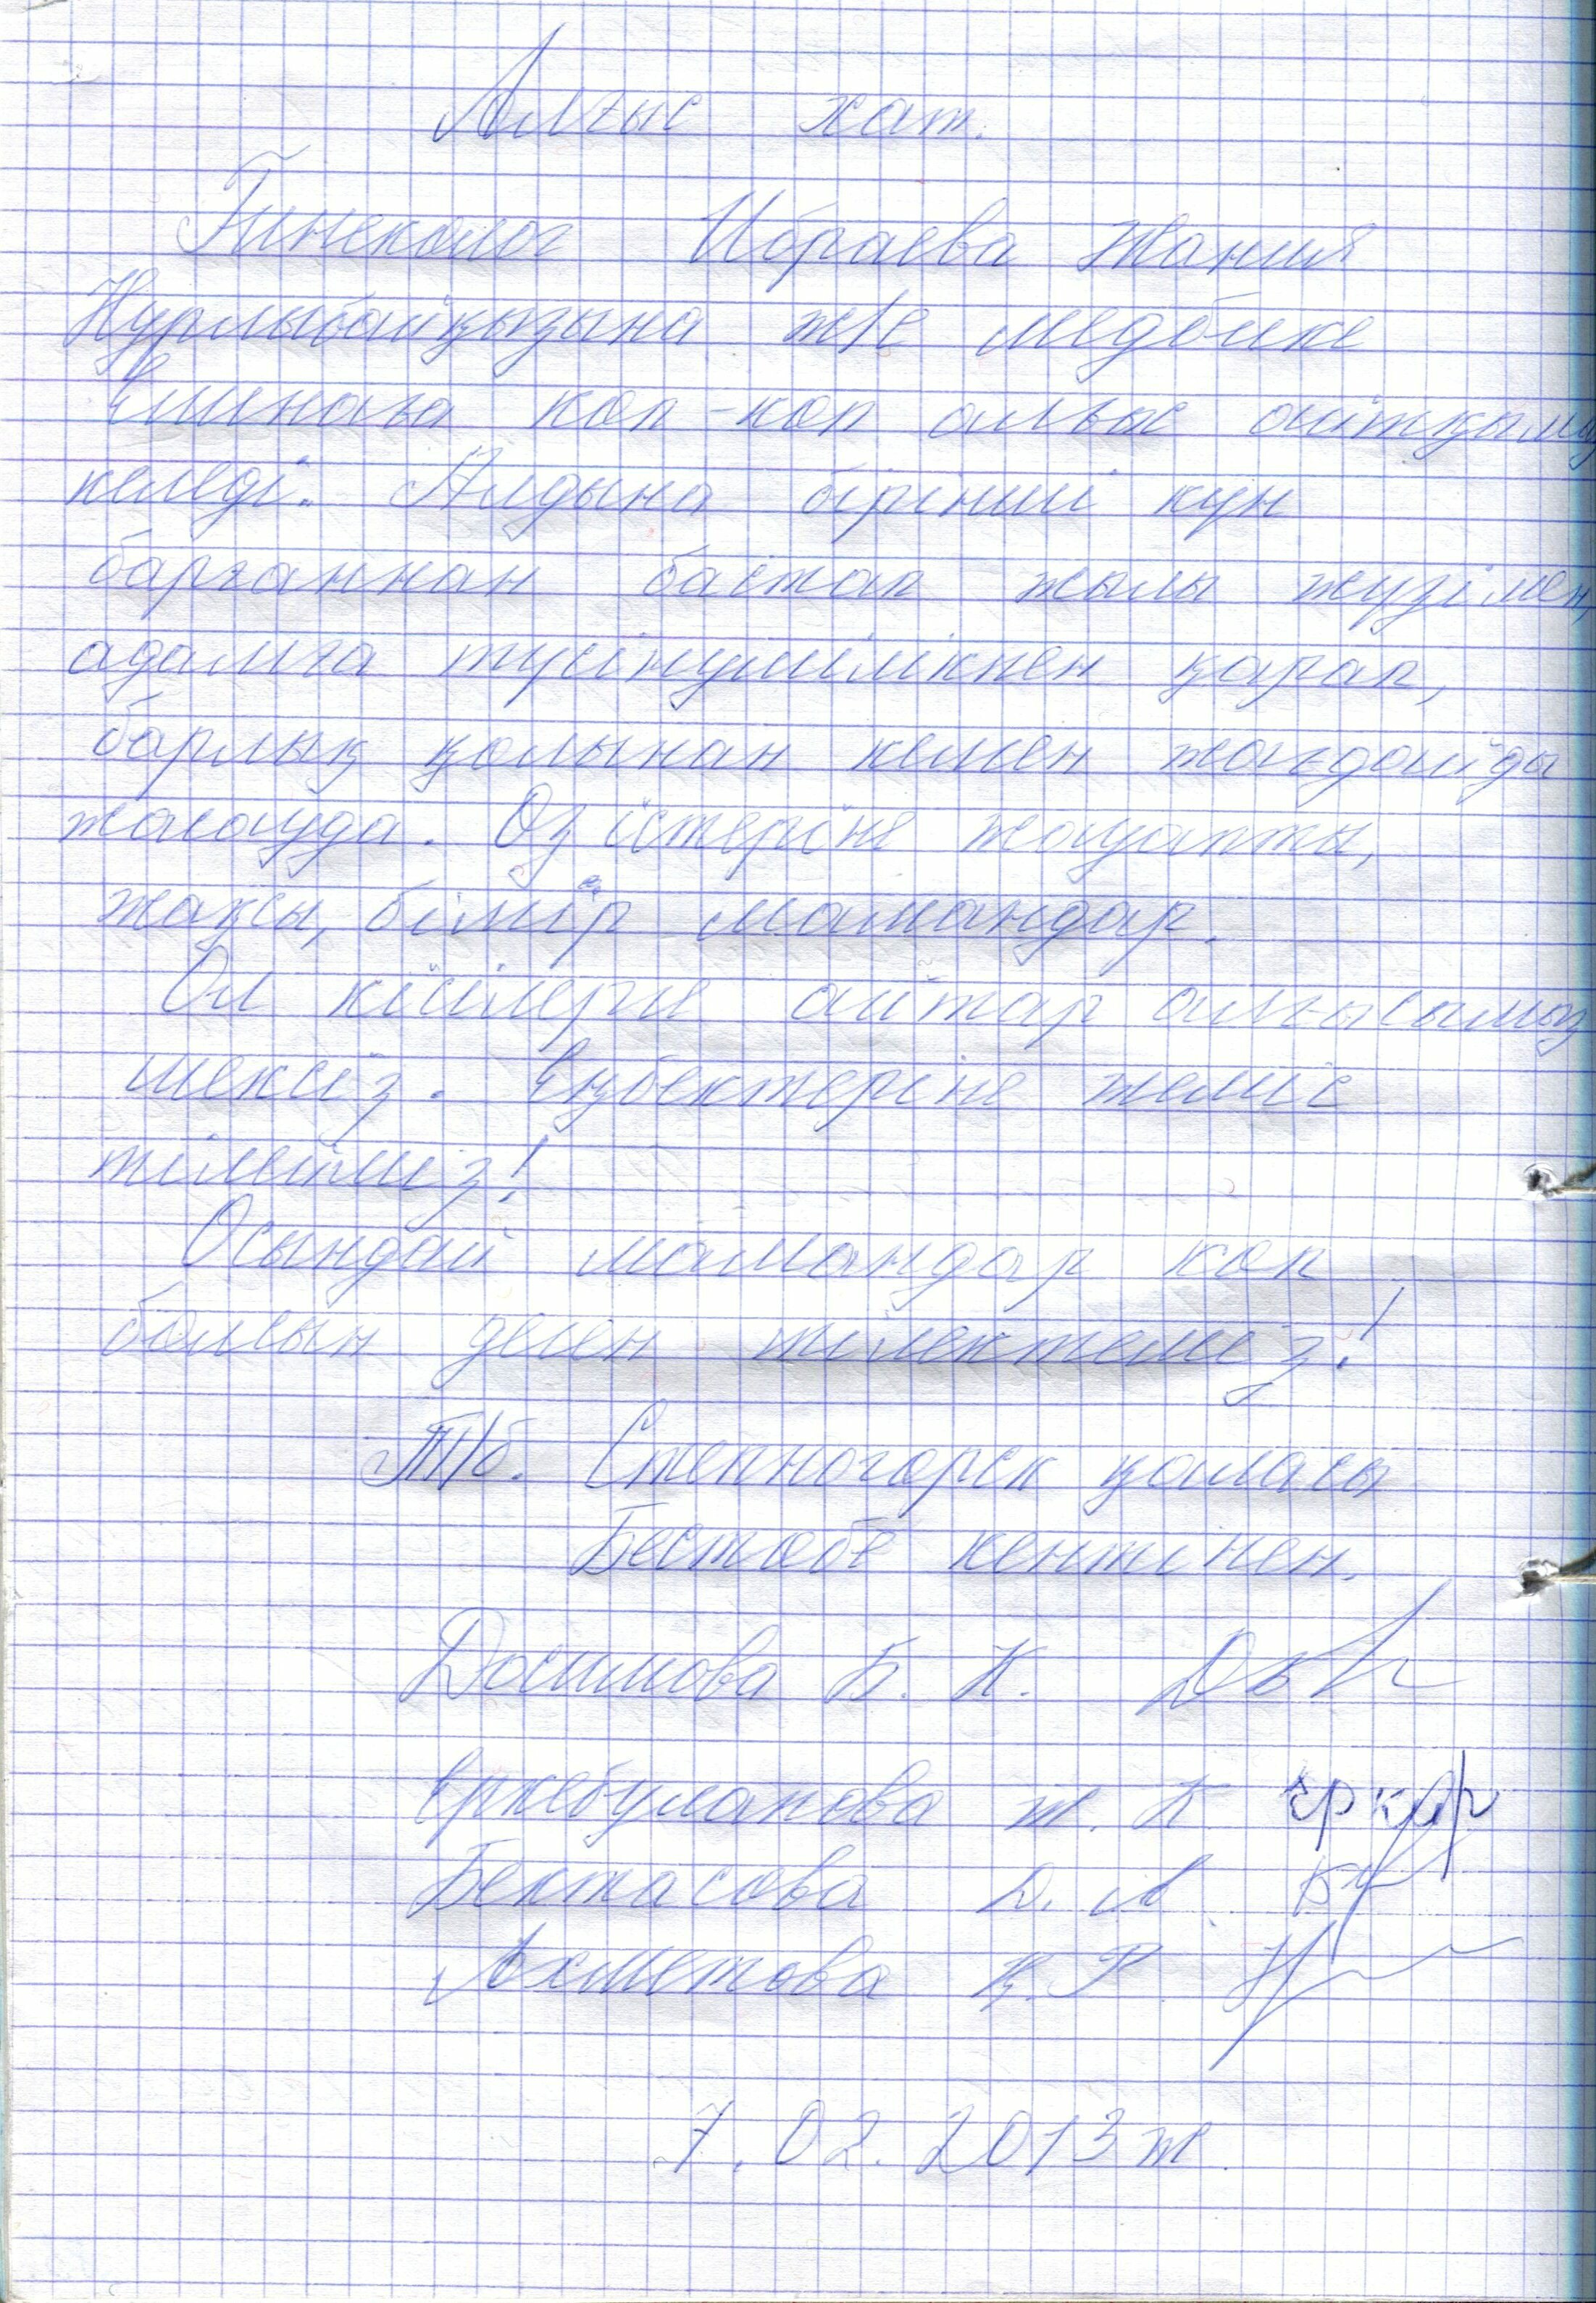 Алғыс хат.
Гинеколог Ибраева Жания
Нұрлыбайқызына ж/е медбике
көп-көп алғыс айтқымыз
келеді. Алдына бірінші күн
барғаннан бастап жылы жүзімен,
адамға түсінушілікпен қарап,
барлық қолынан келген жағдайда
жасауда. Өз істеріне жауапты,
жақсы, білгір мамандар.
Ол кісілерге айтар алғысымыз
шексіз. Еңбектеріне жеміс
тілейміз!
Осындай мамандар көп
болсын деген тілектеміз!
Т/б. Степногорск қаласы
Бестөбе кентінен.
Досымова Б. К.
Еркебуланова Ж. К
Бектасова Д. А.
Ахметова Қ. Р.
7.02.2013 ж.